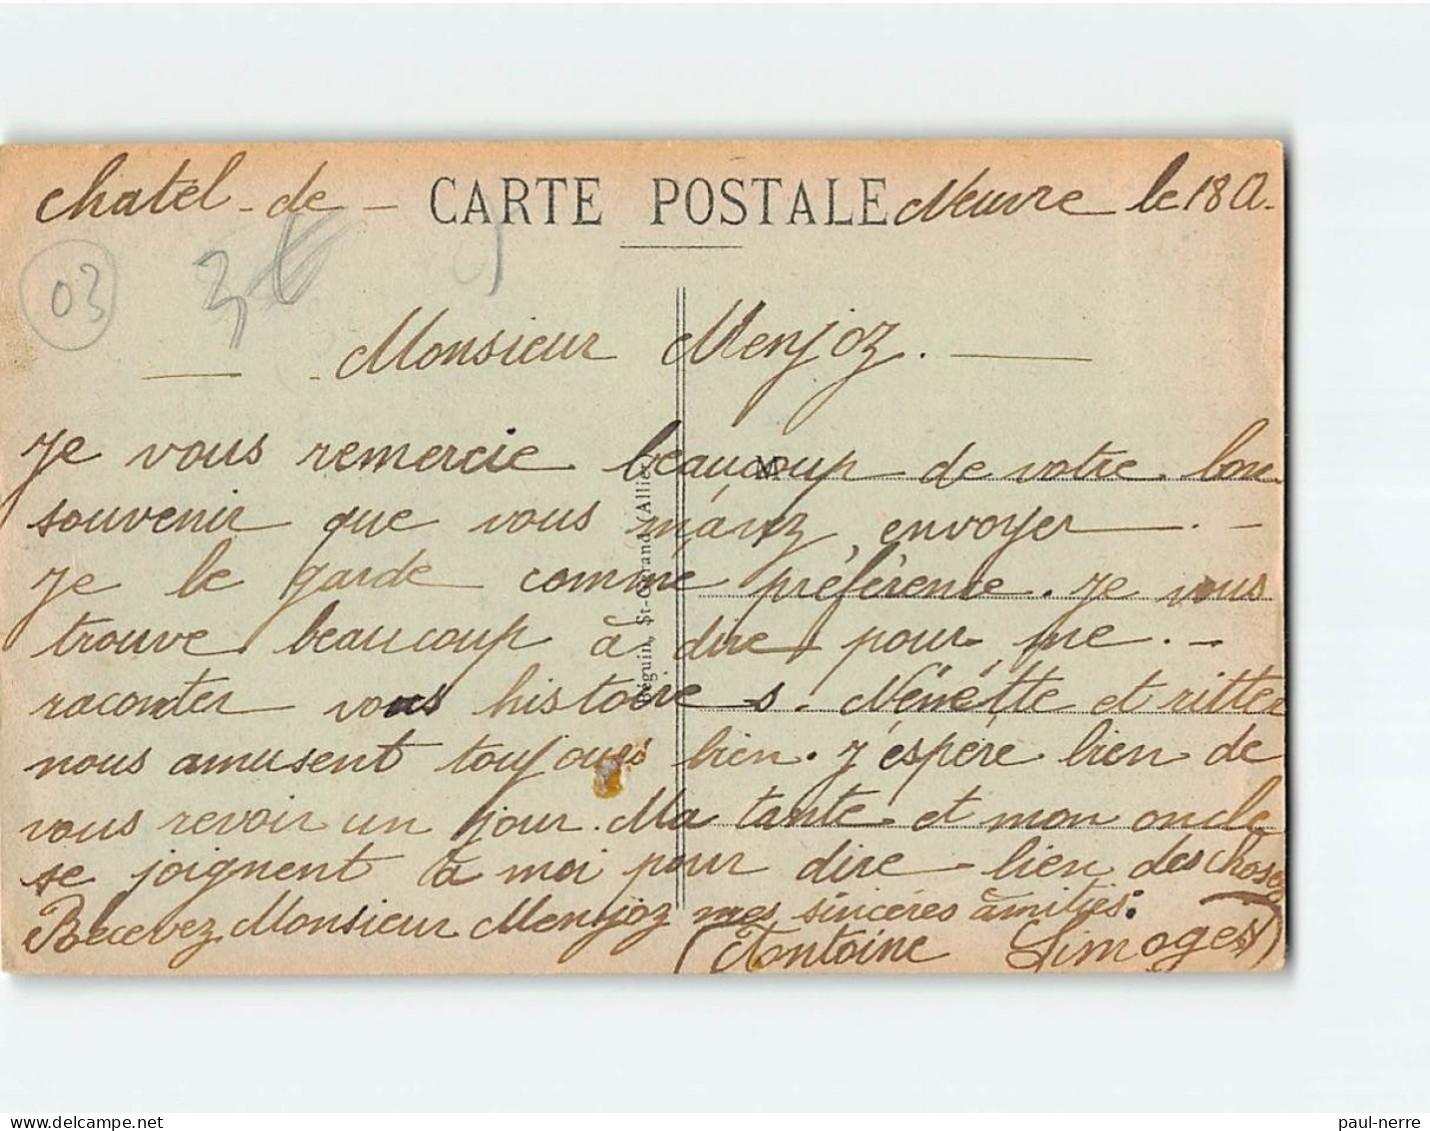 Chatel - de - CARTE POSTALE Neuvre le 18 A.
03 3
Monsieur Menjoz.
Je vous remercie beaucoup de votre bon
souvenir que vous m'avez envoyer
Je le garde comme préférence. Je vous
trouve beaucoup à dire pour me
raconter vous histoire s. Nénette et ritter
nous amusent toujours bien. J'espère bien de
vous revoir un jour. Ma tante et mon oncle
se joignent à moi pour dire bien des choses
Recevez Monsieur Menjoz mes sincères amitiés.
(Antoine Limoges)
M
Béguin, St-Gérand (Allier)
paul-nerre